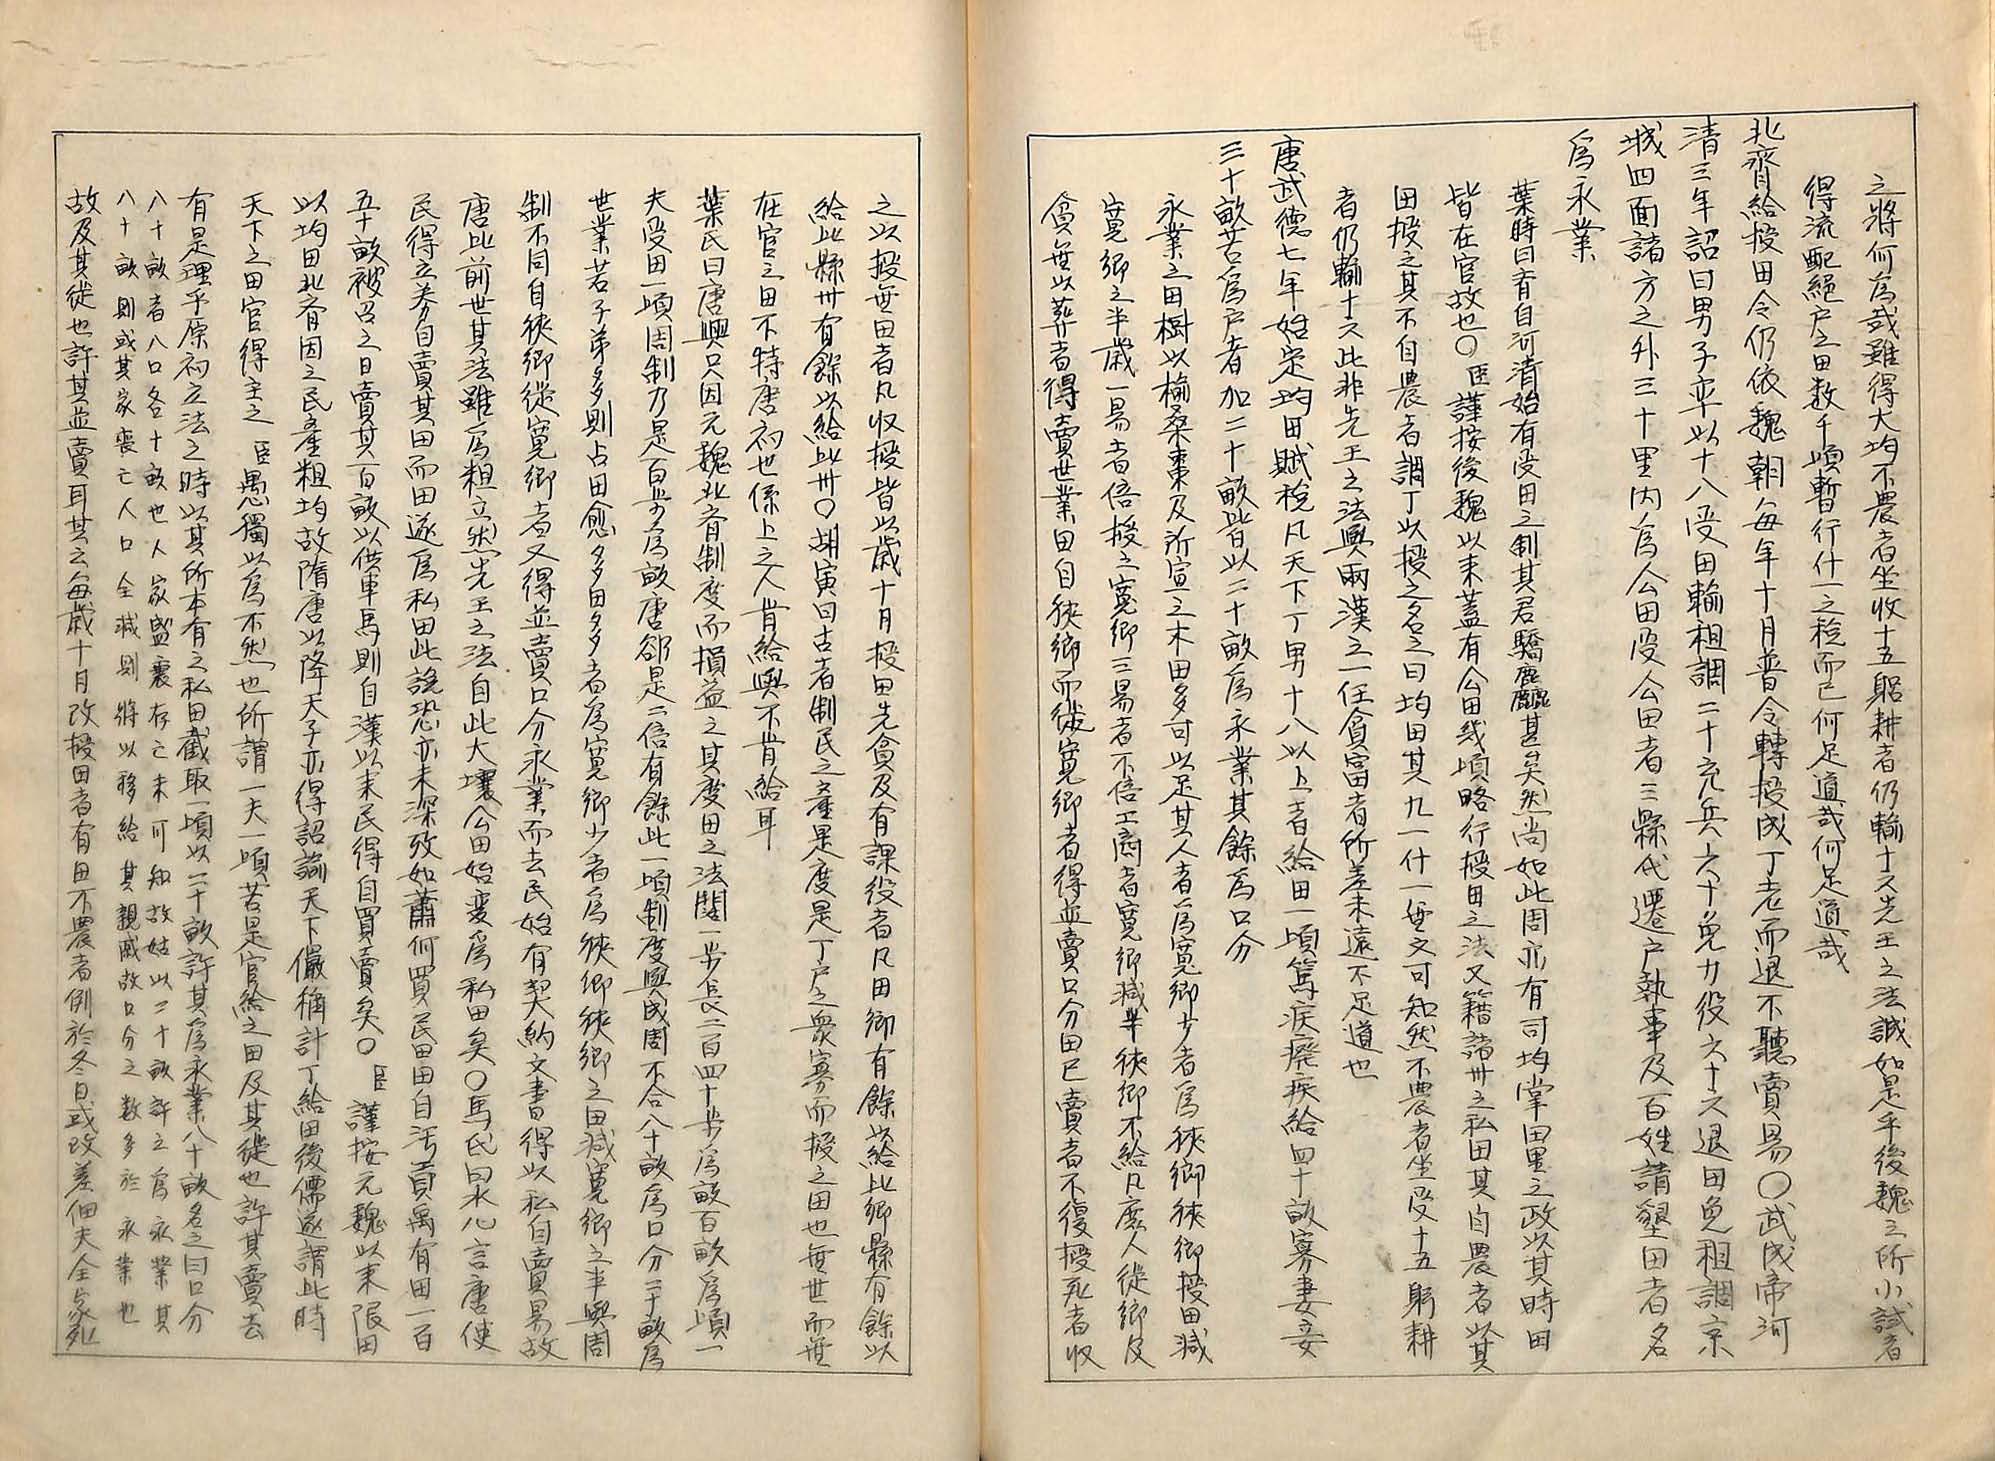 之將何爲哉雖得大均不農者坐收十五躬耕者仍輸十六先王之法誠如是乎後魏之所小試者
得流配絕戶之田數千頃暫行什一之稅而已何足道哉何足道哉
北齊給授田令仍依魏朝每年十月普令轉授成丁老而退不聽賣易〇武成帝河
清三年詔曰男子率以十八受田輸租調二十充兵六十免力役六十六退田免租調京
城四面諸方之外三十里內爲公田受公田者三縣代遷戶執事及百姓請墾田者名
爲永業
葉時曰有自河清始有受田之制其君驕麤甚矣然尚如此周亦有司均掌田里之政以其時田
皆在官故也〇臣謹按後魏以來蓋有公田幾頃略行授田之法又籍諸州之私田其自農者以其
田授之其不自農者調丁以授之名之曰均田其九一什一無文可知然不農者坐受十五躬耕
者仍輸十六此非先王之法與兩漢之一任貧富者所差未遠不足道也
唐武德七年始定均田賦稅凡天下丁男十八以上者給田一頃篤疾癈疾給四十畝寡妻妾
三十畝若爲戶者加二十畝皆以二十畝爲永業其餘爲口分
永業之田樹以楡桑棗及所宜之木田多可以足其人者爲寬鄕少者爲狹鄕狹鄕授田減
寬鄕之半歲一易者倍授之寬鄕三易者不倍工商者寬鄕減半狹鄕不給凡庶人徙鄕及
貧無以葬者得賣世業田自狹鄕而徙寬鄕者得並賣口分田已賣者不復授死者收
之以授無田者凡收授皆以歲十月授田先貧及有課役者凡田鄕有餘以給比鄕縣有餘以
給比縣州有餘以給比州〇胡寅曰古者制民之產是度是丁戶之衆寡而授之田也無世而無
在官之田不特唐初也係上之人肯給與不肯給耳
葉氏曰唐興只因元魏北齊制度而損益之其度田之法闊一步長二百四十步爲畝百畝爲頃一
夫受田一頃周制乃是百步爲畝唐卻是二倍有餘此一頃制度與成周不合八十畝爲口分二十畝爲
世業若子弟多則占田愈多田多者爲寬鄕少者爲狹鄕狹鄕之田減寬鄕之半與周
制不同自狹鄕徙寬鄕者又得並賣口分永業而去民始有契約文書得以私自賣易故
唐比前世其法雖爲粗立然先王之法自此大壞公田始變爲私田矣〇馬氏曰水心言唐使
民得立券自賣其田而田遂爲私田此說恐亦未深攷如蕭何買民田自汚貢禹有田一百
五十畝被召之日賣其百畝以供車馬則自漢以來民得自買賣矣〇臣謹按元魏以來限田
以均田北齊因之民產粗均故隋唐以降天子亦得詔諭天下儼稱計丁給田後儒遂謂此時
天下之田官得主之臣愚獨以爲不然也所謂一夫一頃若是官給之田及其徙也許其賣去
有是理乎原初立法之時以其所本有之私田截取一頃以二十畝許其爲永業八十畝名之曰口分
八十畝者八口各十畝也人家盛衰存亡未可知故姑以二十畝許之爲永業其
八十畝則或其家喪亡人口全減則將以移給其親戚故口分之數多於永業也
故及其徙也許其並賣耳其云每歲十月改授田者有田不農者例於冬日或改差佃夫全家死